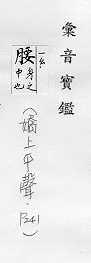 彙音寶鑑
一幺
腰 身之中也
（嬌上平聲．P241）